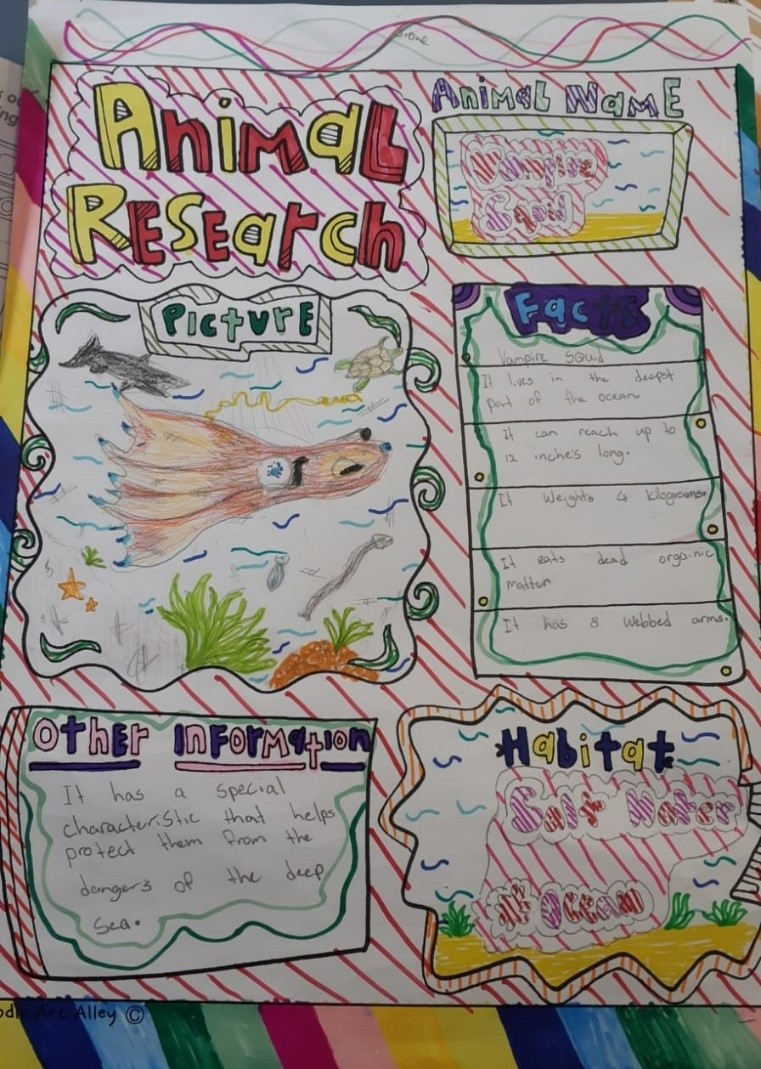 Animal
Research
Animal Name
Vampire
Squid
Picture
Facts
Vampire Squid
It lives in the deepst
part of the ocean
It can reach up to
12 inche's long.
It Weights 4 kilograms.
It eats dead orgainic
matter
It has 8 Webbed arms.
Other Information
It has a special
characteristic that helps
protect them from the
dangers of the deep
Sea.
Habitat
Salt Water
Ocean
Art Alley ©